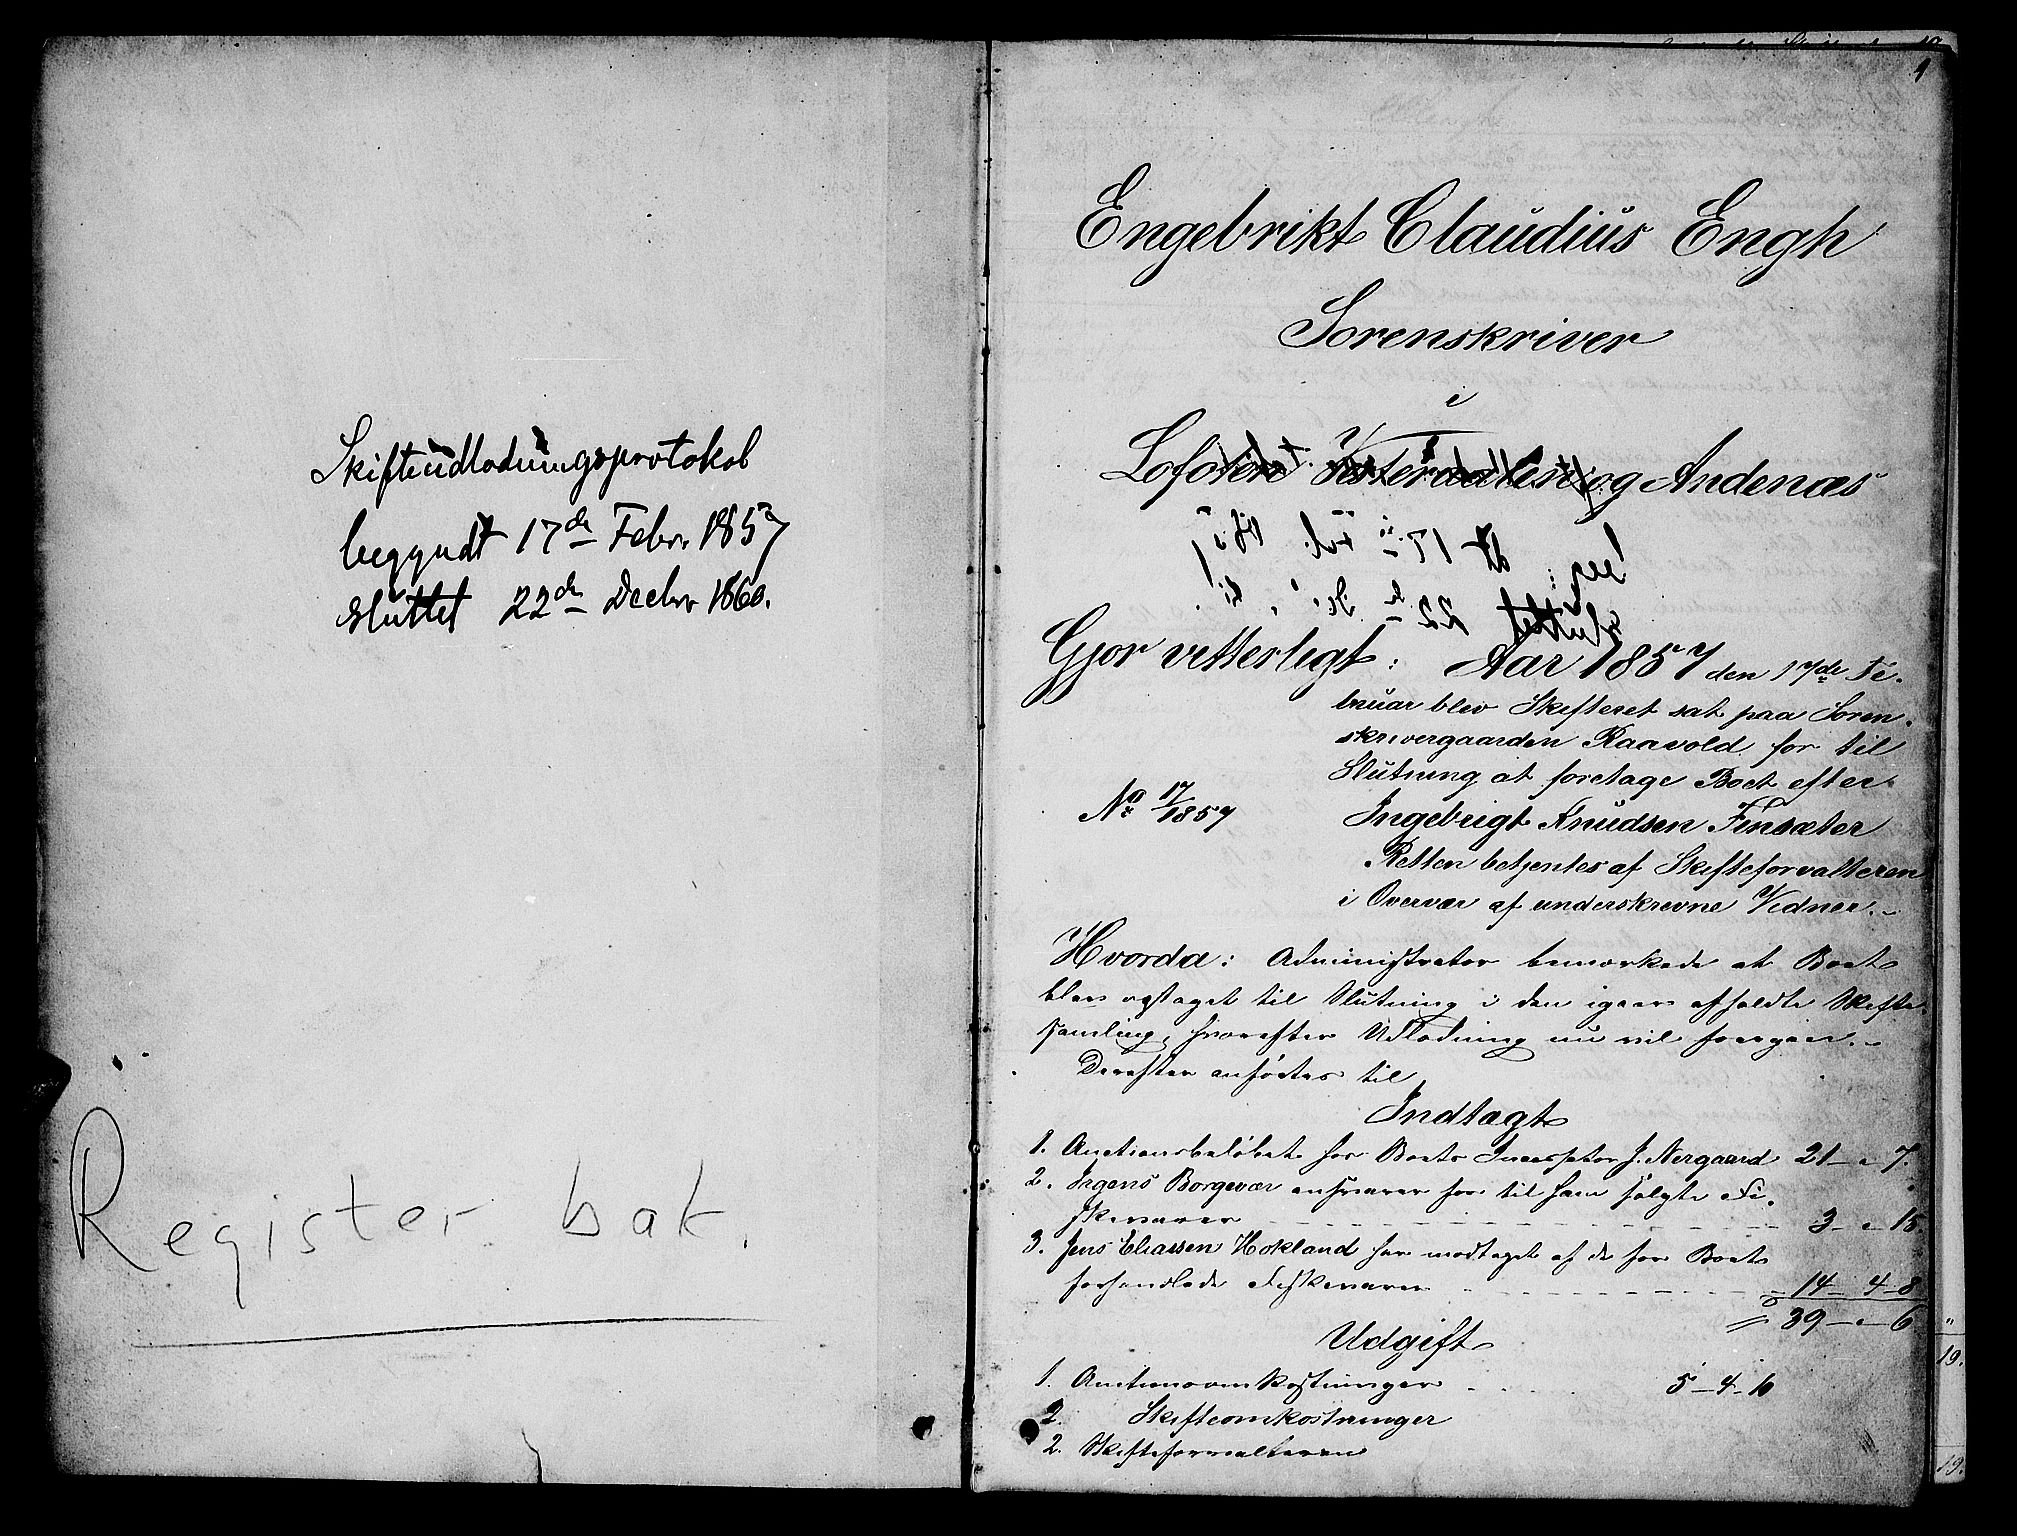 Skifteudlodningsprotokol
begyndt 17de Febr. 1857
sluttet 22de Decbr 1860.
Register bak.
1
Engebrikt Claudius Engh
Sorenskriver
i
Lofoten Vesteraalen og Andenæs
Gjør vitterligt: Aar 1857 den 17de Fe-
bruar blev Skifteret sat paa Soren-
skrivergaarden Raavold for til
Slutning at foretage Boet efter
No 17/1857 Ingebrigt Knudsen Finsæter
Retten betjentes af Skifteforvalteren
i Overvær af underskrevne Vidner.-
Hvorda: Administrator bemærkede at Boet
blev optaget til Slutning i den igaar afholdte Skifte-
samling, hvorefter Udlodning nu vil foregaae.-
Derefter anførtes til
Indtægt
1. Auctionsbeløbet for Boets Incassator J. Nergaard 21 - " 7.
2. Irgens Borgevær ansvarer for til ham solgte Fi-
skevarer 3 - " - 15
3. Jens Eliassen Hokland har modtaget af de for Boet
forhandlede Fiskevarer 14 - 4 - 8
39 - " - 6
Udgift
1. Auctionsomkostninger 5 - 4 - 16
2. Skifteomkostninger
2. Skifteforvalteren